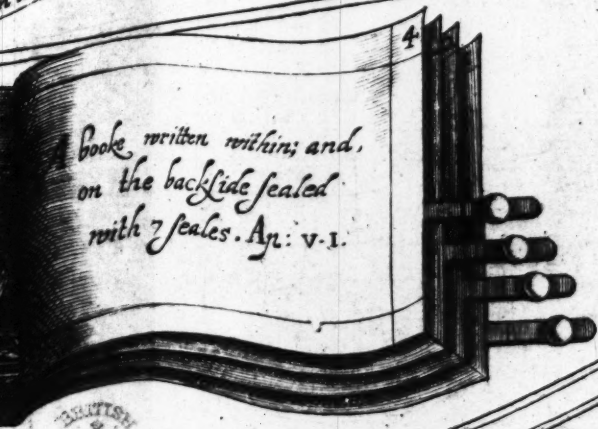 4
A booke written within; and,
on the backside sealed
with 7 seales. Ap: V.I.
BRITISH